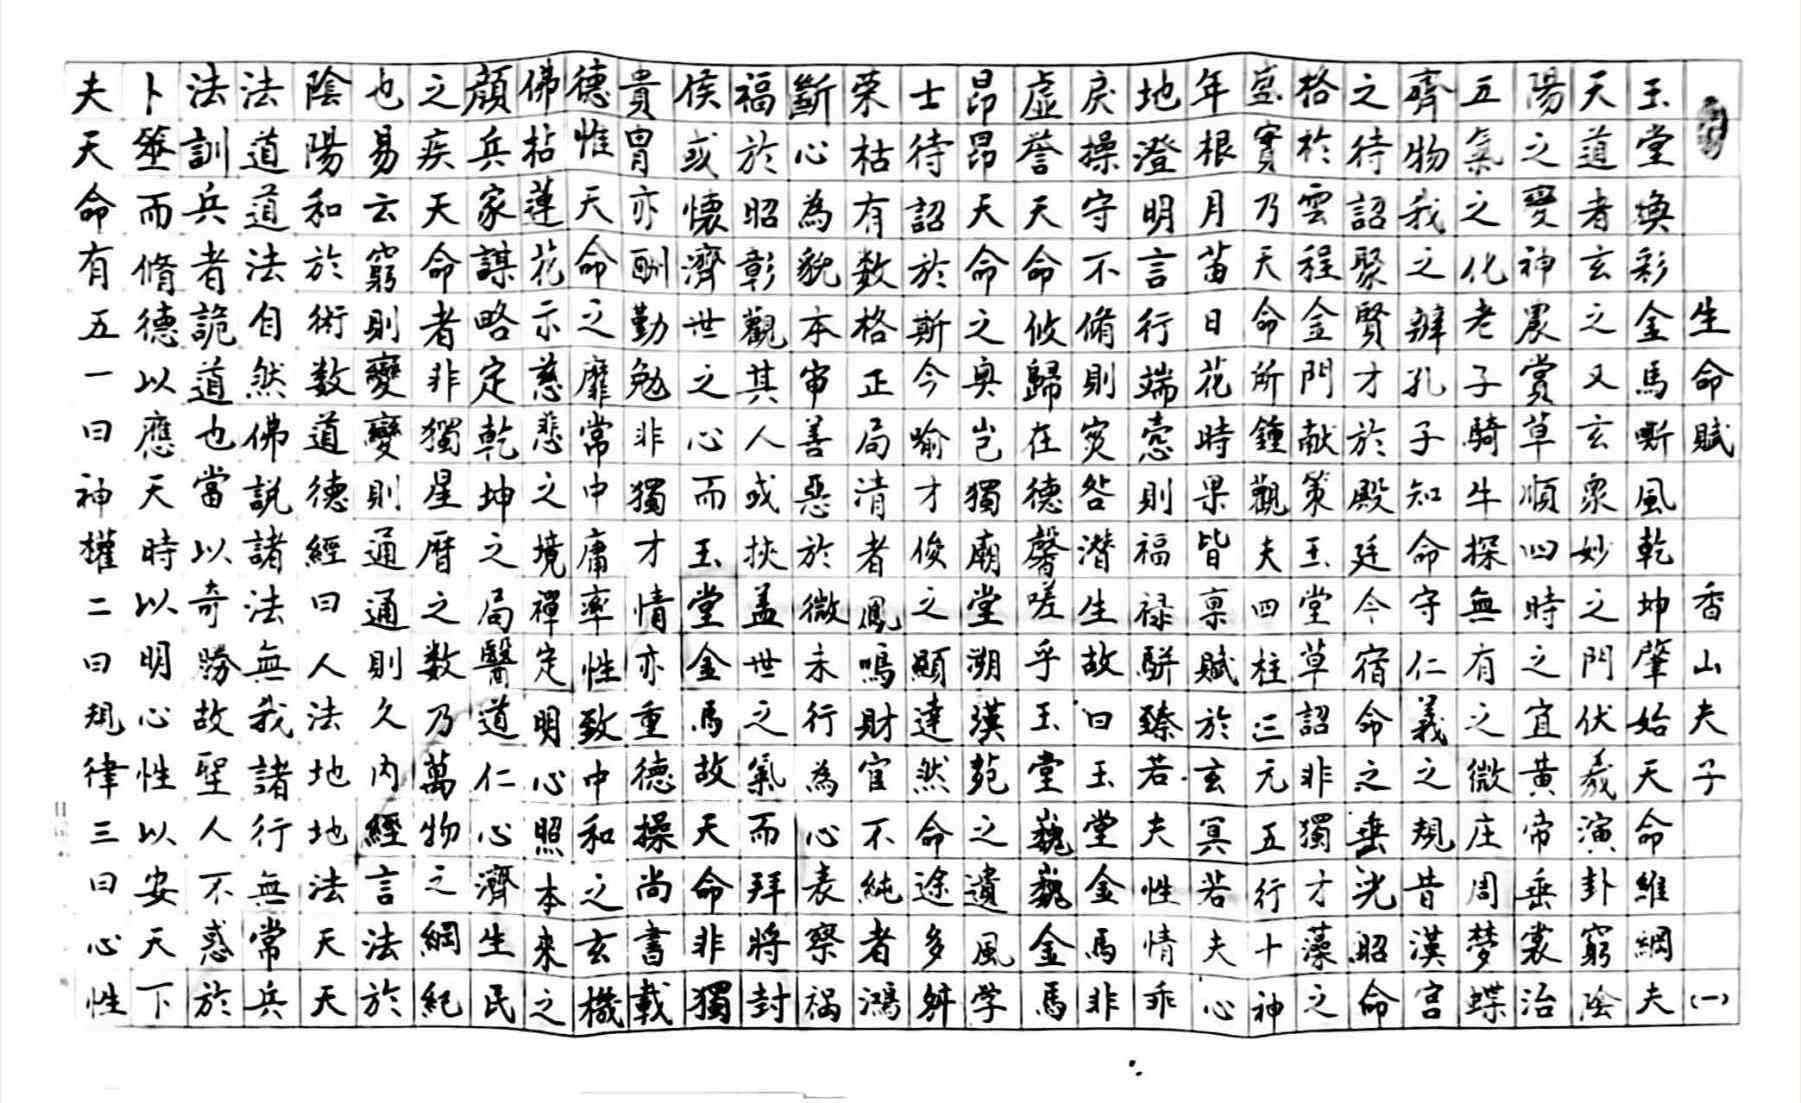 生命賦 香山夫子 (一)
玉堂煥彩金馬嘶風乾坤肇始天命維綱夫
天道者玄之又玄眾妙之門伏羲演卦窮陰
陽之變神農嘗草順四時之宜黃帝垂裳治
五氣之化老子騎牛探無有之微庄周梦蝶
齊物我之辨孔子知命守仁義之規昔漢宮
之待詔聚賢才於殿廷今宿命之垂光昭命
格於雲程金門献策玉堂草詔非獨才藻之
盈實乃天命所鍾觀夫四柱三元五行十神
年根月苗日花時果皆稟賦於玄冥若夫心
地澄明言行端慤則福禄駢臻若夫性情乖
戾操守不脩則灾咎潛生故曰玉堂金馬非
虛譽天命攸歸在德馨嗟乎玉堂巍巍金馬
昂昂天命之奥岂獨廟堂溯漢苑之遺風学
士待詔於斯今喻才俊之顯達然命途多舛
荣枯有数格正局清者鳳鳴財官不純者鴻
斷心為貌本审善惡於微未行為心表察禍
福於昭彰觀其人或挾盖世之氣而拜將封
侯或懷濟世之心而玉堂金馬故天命非獨
貴胄亦酬勤勉非獨才情亦重德操尚書載
德惟天命之靡常中庸率性致中和之玄機
佛拈蓮花示慈悲之境禪定明心照本來之
顔兵家謀略定乾坤之局醫道仁心濟生民
之疾天命者非獨星曆之数乃萬物之綱紀
也易云窮則變變則通通則久内經言法於
陰陽和於術数道德經曰人法地地法天天
法道道法自然佛説諸法無我諸行無常兵
法訓兵者詭道也當以奇勝故聖人不惑於
卜筮而脩德以應天時以明心性以安天下
夫天命有五一曰神權二曰規律三曰心性